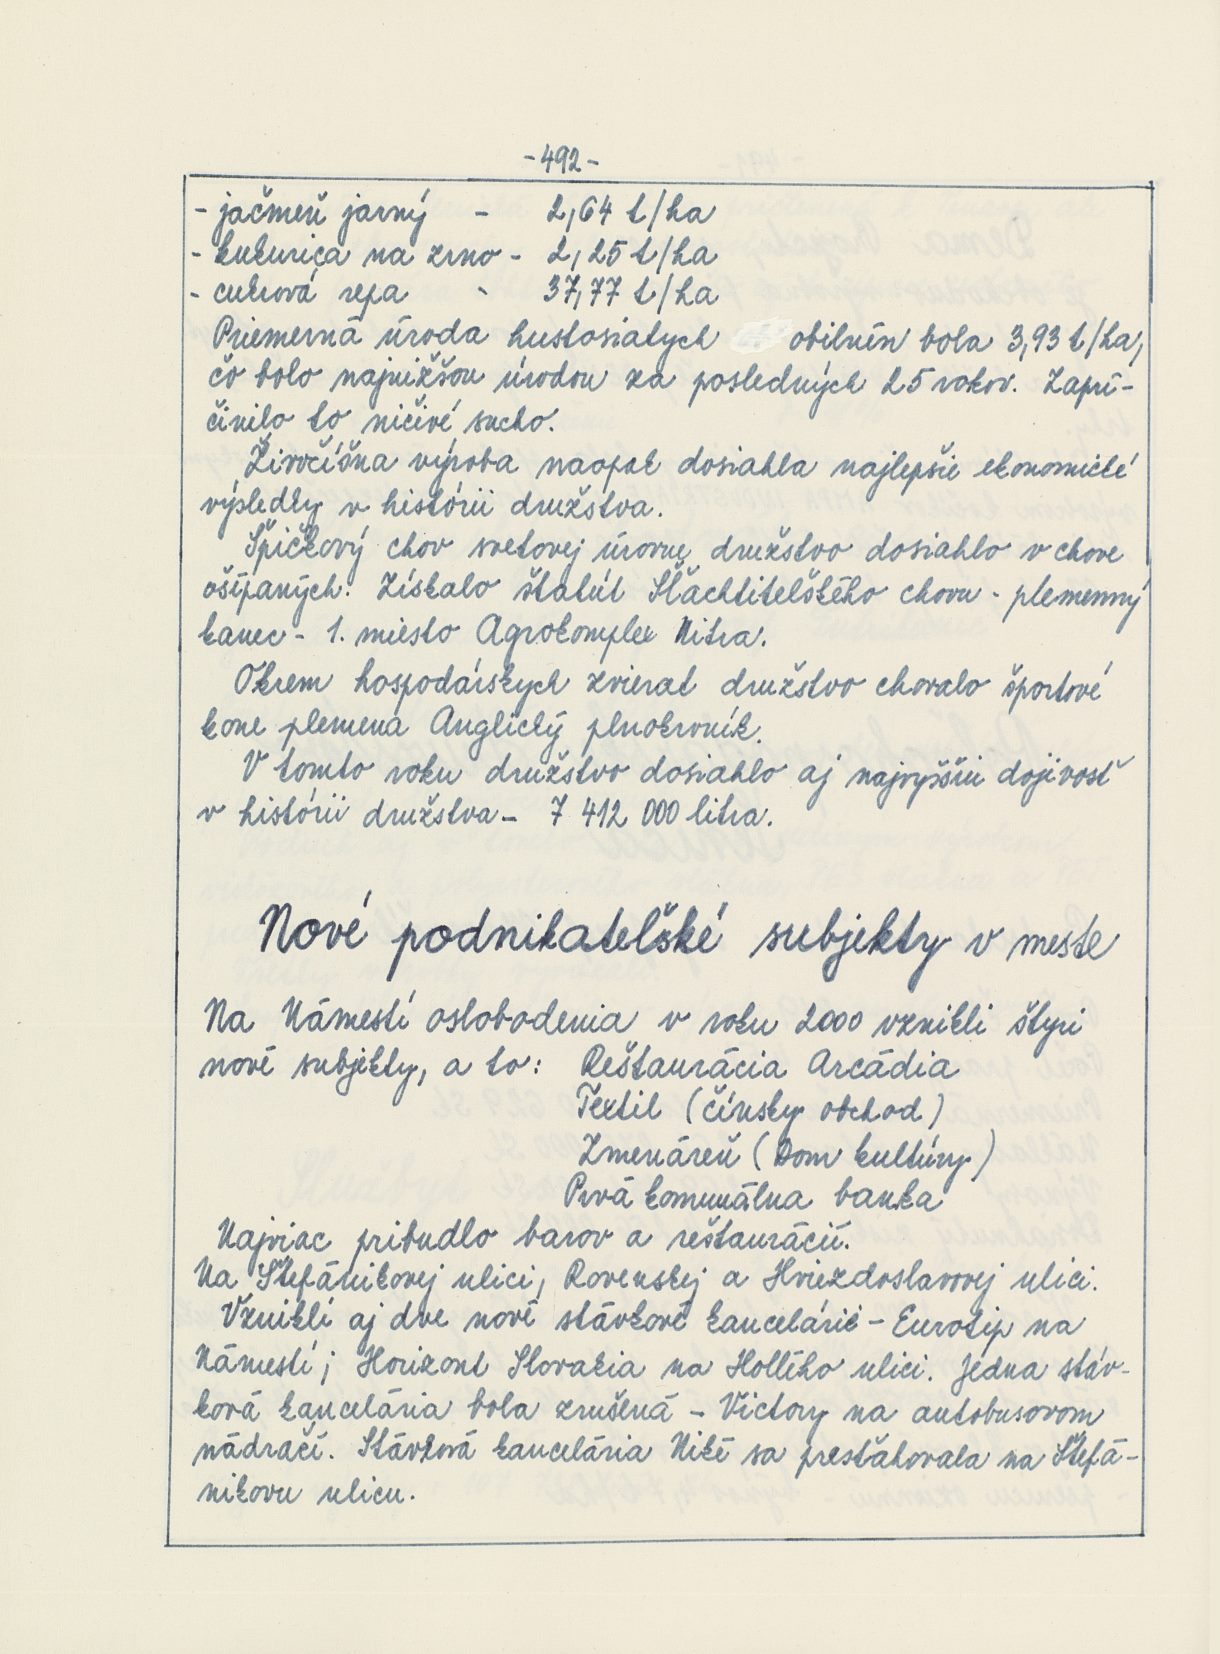 -492-
- jačmeň jarný - 2,64 t/ha
- kukurica na zrno - 2,25 t/ha
- cukrová repa - 37,77 t/ha
Priemerná úroda hustosiatych obilnín bola 3,93 t/ha,
čo bolo najnižšou úrodou za posledných 25 rokov. Zaprí-
činilo to ničivé sucho.
Živočíšna výroba naopak dosiahla najlepšie ekonomické
výsledky v histórii družstva.
Špičkový chov svetovej úrovne družstvo dosiahlo v chove
ošípaných. Získalo štatút Šľachtiteľského chovu - plemenný
kanec - 1. miesto Agrokomplex Nitra.
Okrem hospodárskych zvierat družstvo chovalo športové
kone plemena Anglický plnokrvník.
V tomto roku družstvo dosiahlo aj najvyššiu dojivosť
v histórii družstva - 7 412 000 litra.
Nové podnikateľské subjekty v meste
Na Námestí oslobodenia v roku 2000 vznikli štyri
nové subjekty, a to: Reštaurácia Arcádia
Textil (čínsky obchod)
Zmenáreň (Dom kultúry)
Prvá komunálna banka
Najviac pribudlo barov a reštaurácií.
Na Štefánikovej ulici, Rovenskej a Hviezdoslavovej ulici.
Vznikli aj dve nové stávkové kancelárie - Eurotip na
Námestí; Horizont Slovakia na Hollého ulici. Jedna stáv-
ková kancelária bola zrušená - Victory na autobusovom
nádraží. Stávková kancelária Niké sa presťahovala na Štefá-
nikovu ulicu.